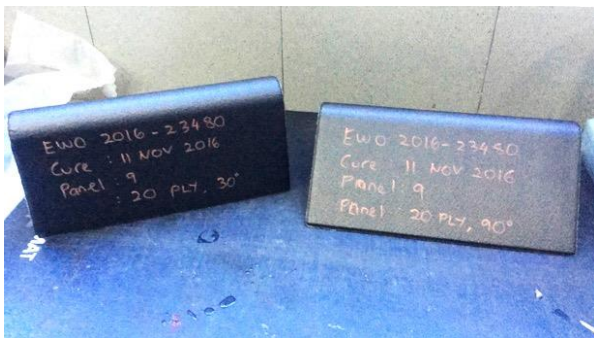 EWO 2016-23480
Cure : 11 NOV 2016
Panel : 9
: 20 PLY, 30°
EWO 2016-23480
Cure : 11 NOV 2016
Panel : 9
Panel : 20 PLY, 90°